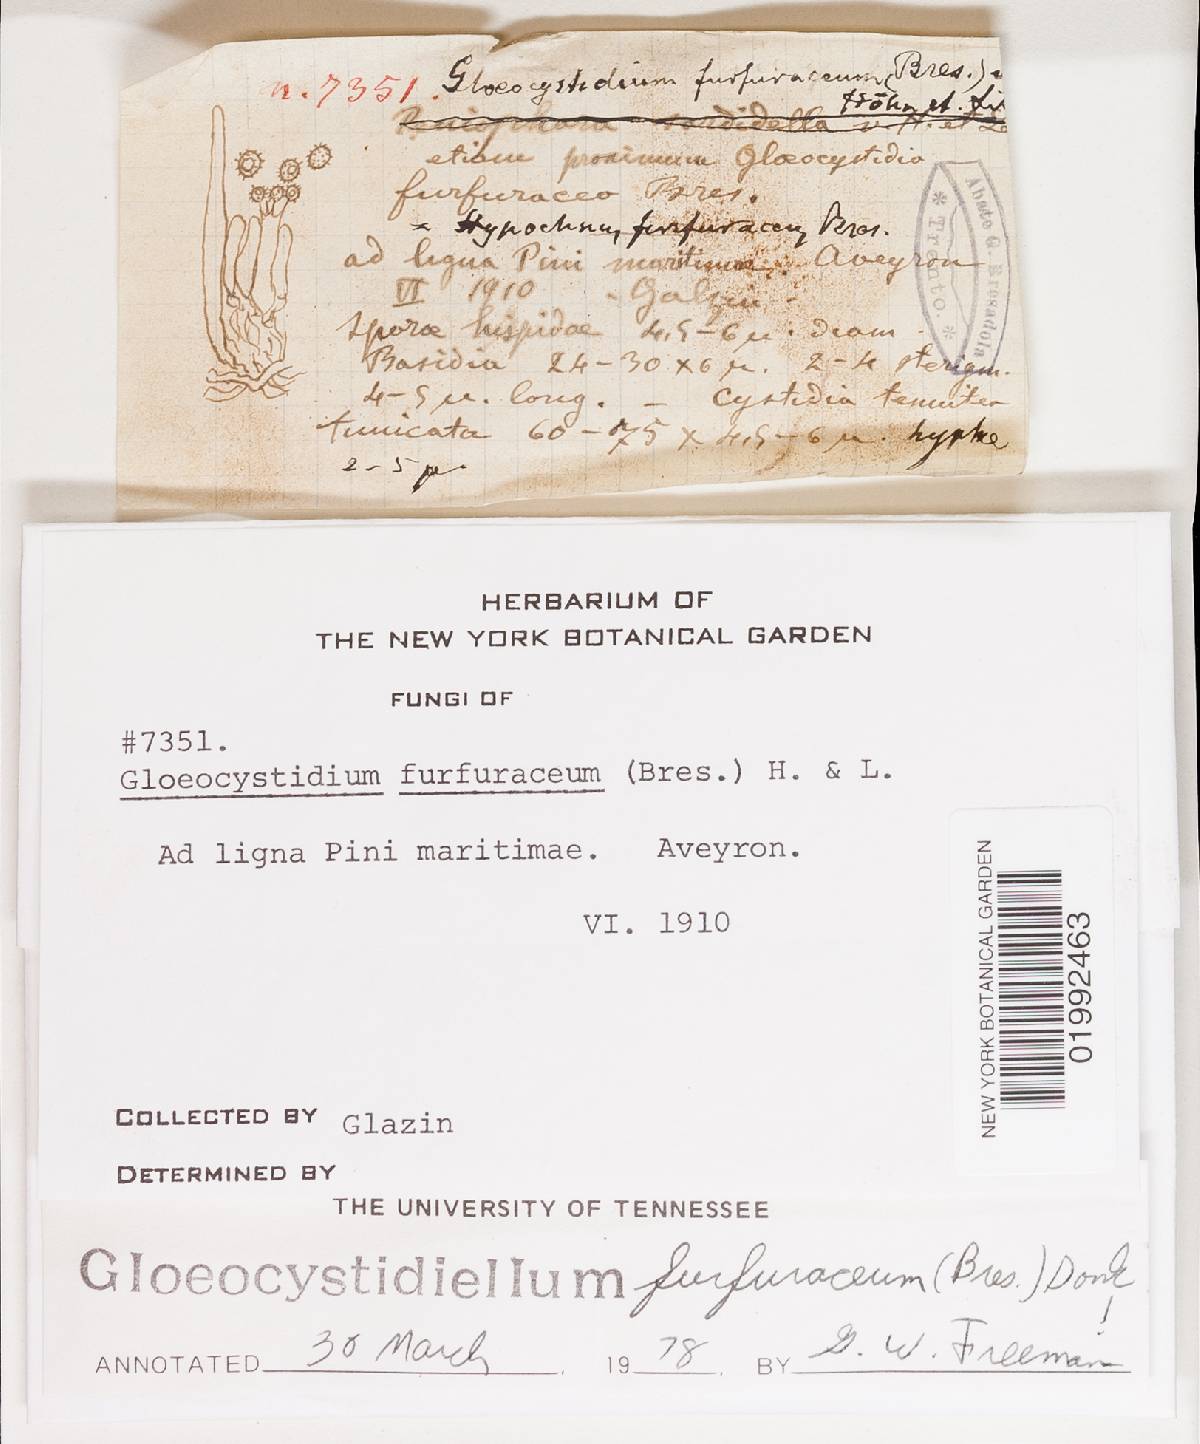 n. 7351. Gloeocystidium furfuraceum (Bres.)
Höhn. et. Li
Peniophora sordidella v. H. et
etiam proximum Gloeocystidio
furfuraceo Bres.
= Hypochnus furfuraceus Bres.
ad ligna Pini maritimae. Aveyron
VI 1910 - Galzin -
Sporae hispidae 4,5-6 µ. diam
Basidia 24-30 x 6 µ. 2-4 sterigm.
4-5 µ. long. - Cystidia tenuiter
tunicata 60-75 x 4,5-6 µ. hyphae
2-5 µ.
Abate G. Bresadola
* Trento. *
HERBARIUM OF
THE NEW YORK BOTANICAL GARDEN
FUNGI OF
#7351.
Gloeocystidium furfuraceum (Bres.) H. & L.
Ad ligna Pini maritimae. Aveyron.
VI. 1910
NEW YORK BOTANICAL GARDEN
01992463
COLLECTED BY Glazin
DETERMINED BY
THE UNIVERSITY OF TENNESSEE
Gloeocystidiellum furfuraceum (Bres.) Donk
!
ANNOTATED 30 March, 19 78. BY G. W. Freeman